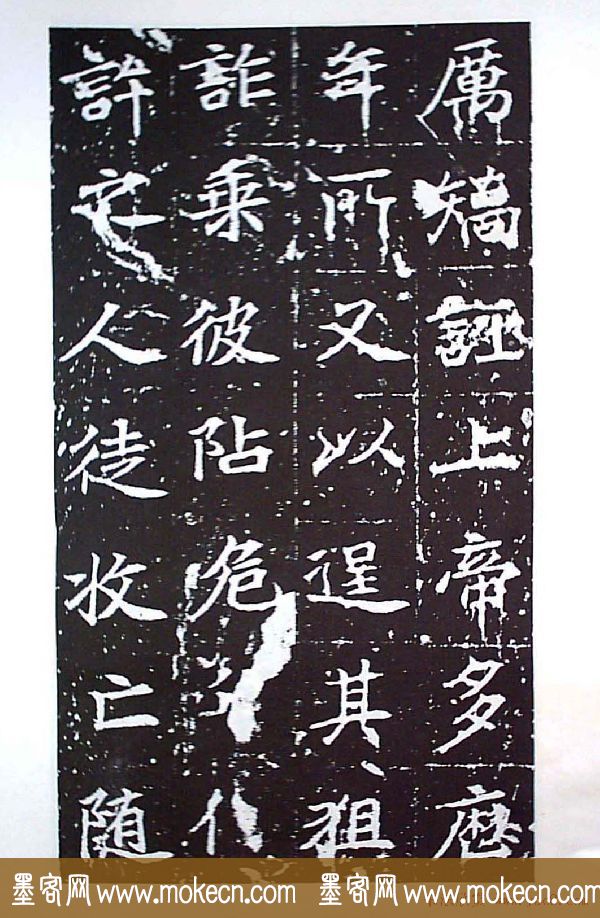 厲矯誣上帝多歷
年所又以逞其狙
詐乘彼阽危
許之人徒收亡随
墨客网 www.mokecn.com 墨客网 www.mokecn.com